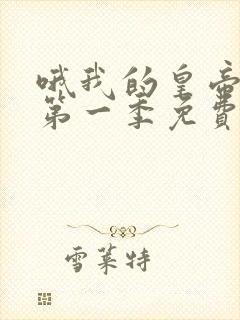 哦我的皇帝
第一季免费
雪莱特